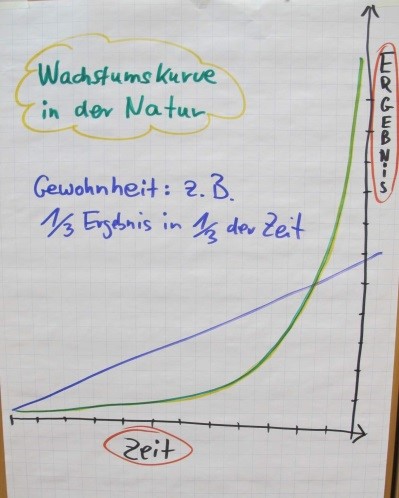 Wachstumskurve
in der Natur
ERGEBNiS
Gewohnheit: z.B.
1/3 Ergebnis in 1/3 der Zeit
Zeit